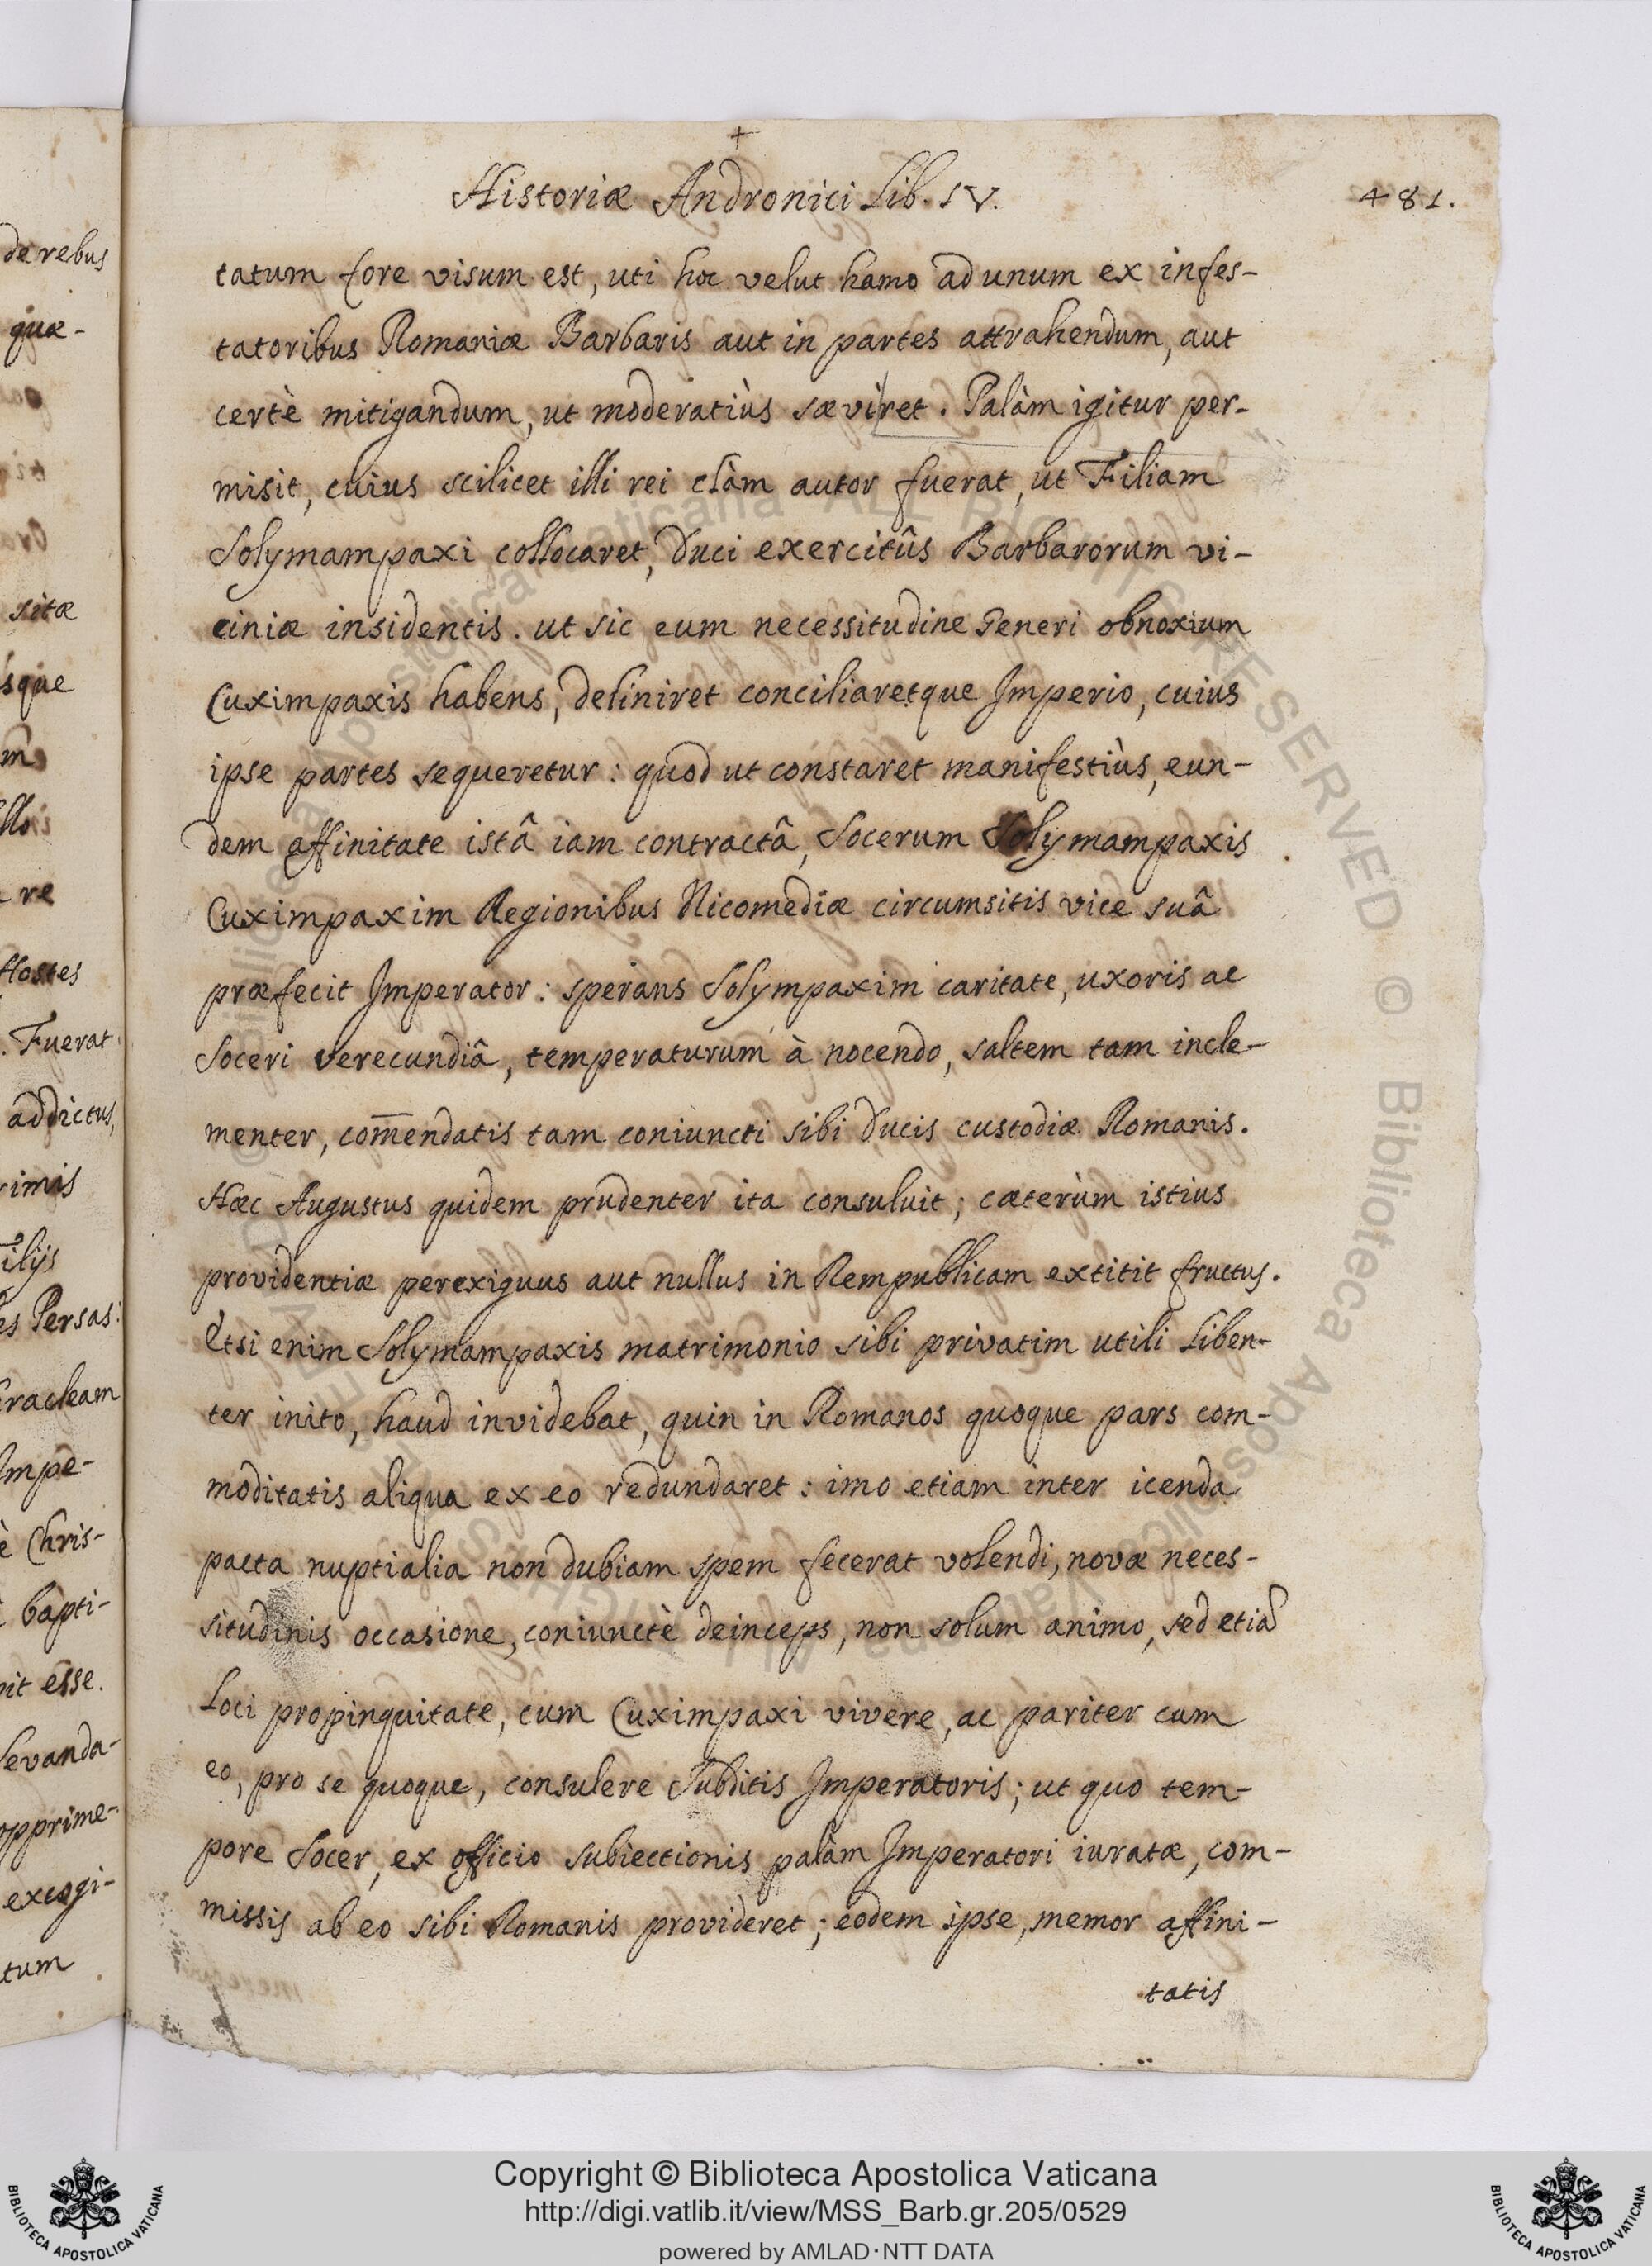 +
Historiæ Andronici Lib. IV.
481.
tatum fore visum est, uti hoc velut hamo ad unum ex infes-
tatoribus Romaniæ Barbaris aut in partes attrahendum, aut
certè mitigandum, ut moderatiùs sæviret. Palàm igitur per-
misit, cuius scilicet illi rei clàm autor fuerat, ut Filiam
Solymampaxi collocaret, Duci exercitûs Barbarorum vi-
ciniæ insidentis. ut sic eum necessitudine Generi obnoxium
Cuximpaxis habens, deliniret conciliaretque Imperio, cuius
ipse partes sequeretur: quod ut constaret manifestiùs, eun-
dem affinitate istâ iam contractâ, Socerum Solymampaxis
Cuximpaxim Regionibus Nicomediæ circumsitis vice suâ
præfecit Imperator: sperans Solympaxim caritate, uxoris ac
Soceri verecundiâ, temperaturum à nocendo, saltem tam incle-
menter, com̄endatis tam coniuncti sibi Ducis custodiæ Romanis.
Hæc Augustus quidem prudenter ita consuluit; cæterùm istius
providentiæ perexiguus aut nullus in Rempublicam extitit fructus.
Etsi enim Solymampaxis matrimonio sibi privatim utili Liben-
ter inito, haud invidebat, quin in Romanos quoque pars com-
moditatis aliqua ex eo redundaret: imo etiam inter icenda
pacta nuptialia non dubiam spem fecerat volendi, novæ neces-
situdinis occasione, coniunctè deinceps, non solum animo, sed etiã
Loci propinquitate, cum Cuximpaxi vivere, ac pariter cum
eo, pro se quoque, consulere Subditis Imperatoris; ut quo tem-
pore Socer, ex officio subiectionis palàm Imperatori iuratæ, com-
missis ab eo sibi Romanis provideret; eodem ipse, memor affini-
tatis
de rebus
quæ-
sitæ
sque
re
Hostes
. Fuerat
addictus,
rimis
ilijs
es Persas:
racleam
Impe-
è Chris-
bapti-
nit esse.
levanda-
opprime-
excogi-
tum
© Biblioteca Apostolica Vaticana ALL RIGHTS RESERVED
Copyright © Biblioteca Apostolica Vaticana
http://digi.vatlib.it/view/MSS_Barb.gr.205/0529
powered by AMLAD·NTT DATA
BIBLIOTECA APOSTOLICA VATICANA
BIBLIOTECA APOSTOLICA VATICANA